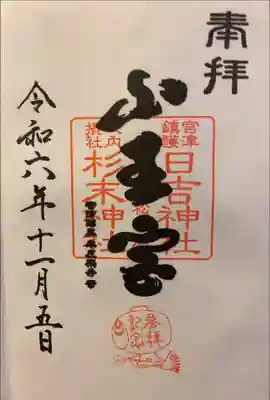 奉拝
山王宮
宮津
鎮護
日吉神社
境内
摂社
杉末神社
令和六年十一月五日
参拝
記念